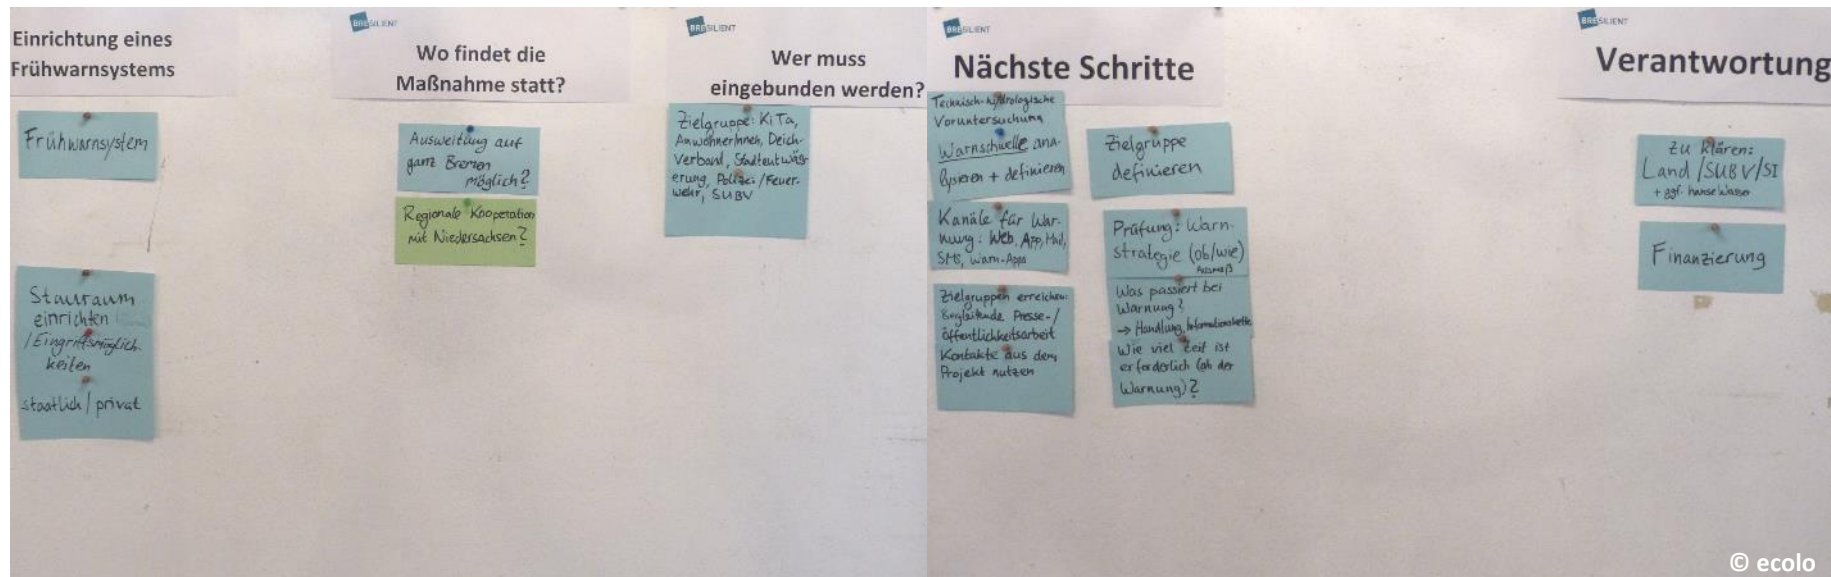 Einrichtung eines
Frühwarnsystems
Frühwarnsystem
Stauraum
einrichten
/Eingriffsmöglich-
keiten
staatlich / privat
BRESILIENT
Wo findet die
Maßnahme statt?
Ausweitung auf
ganz Bremen
möglich?
Regionale Kooperation
mit Niedersachsen?
BRESILIENT
Wer muss
eingebunden werden?
Zielgruppe: KiTa,
AnwohnerInnen, Deich-
verband, Stadtentwäss-
erung, Polizei/Feuer-
wehr, SUBV
BRESILIENT
Nächste Schritte
Technisch-hydrologische
Voruntersuchung
Warnschwelle ana-
lysieren + definieren
Kanäle für War-
nung: Web, App, Mail,
SMS, Warn-Apps
Zielgruppen erreichen:
Begleitende Presse-/
öffentlichkeitsarbeit
Kontakte aus dem
Projekt nutzen
Zielgruppe
definieren
Prüfung: Warn-
strategie (ob/wie)
Ausmaß
Was passiert bei
Warnung?
→ Handlung, Informationskette
Wie viel Zeit ist
erforderlich (ab der
Warnung)?
BRESILIENT
Verantwortung
Zu klären:
Land /SUBV/SI
+ ggf. hanseWasser
Finanzierung
© ecolo